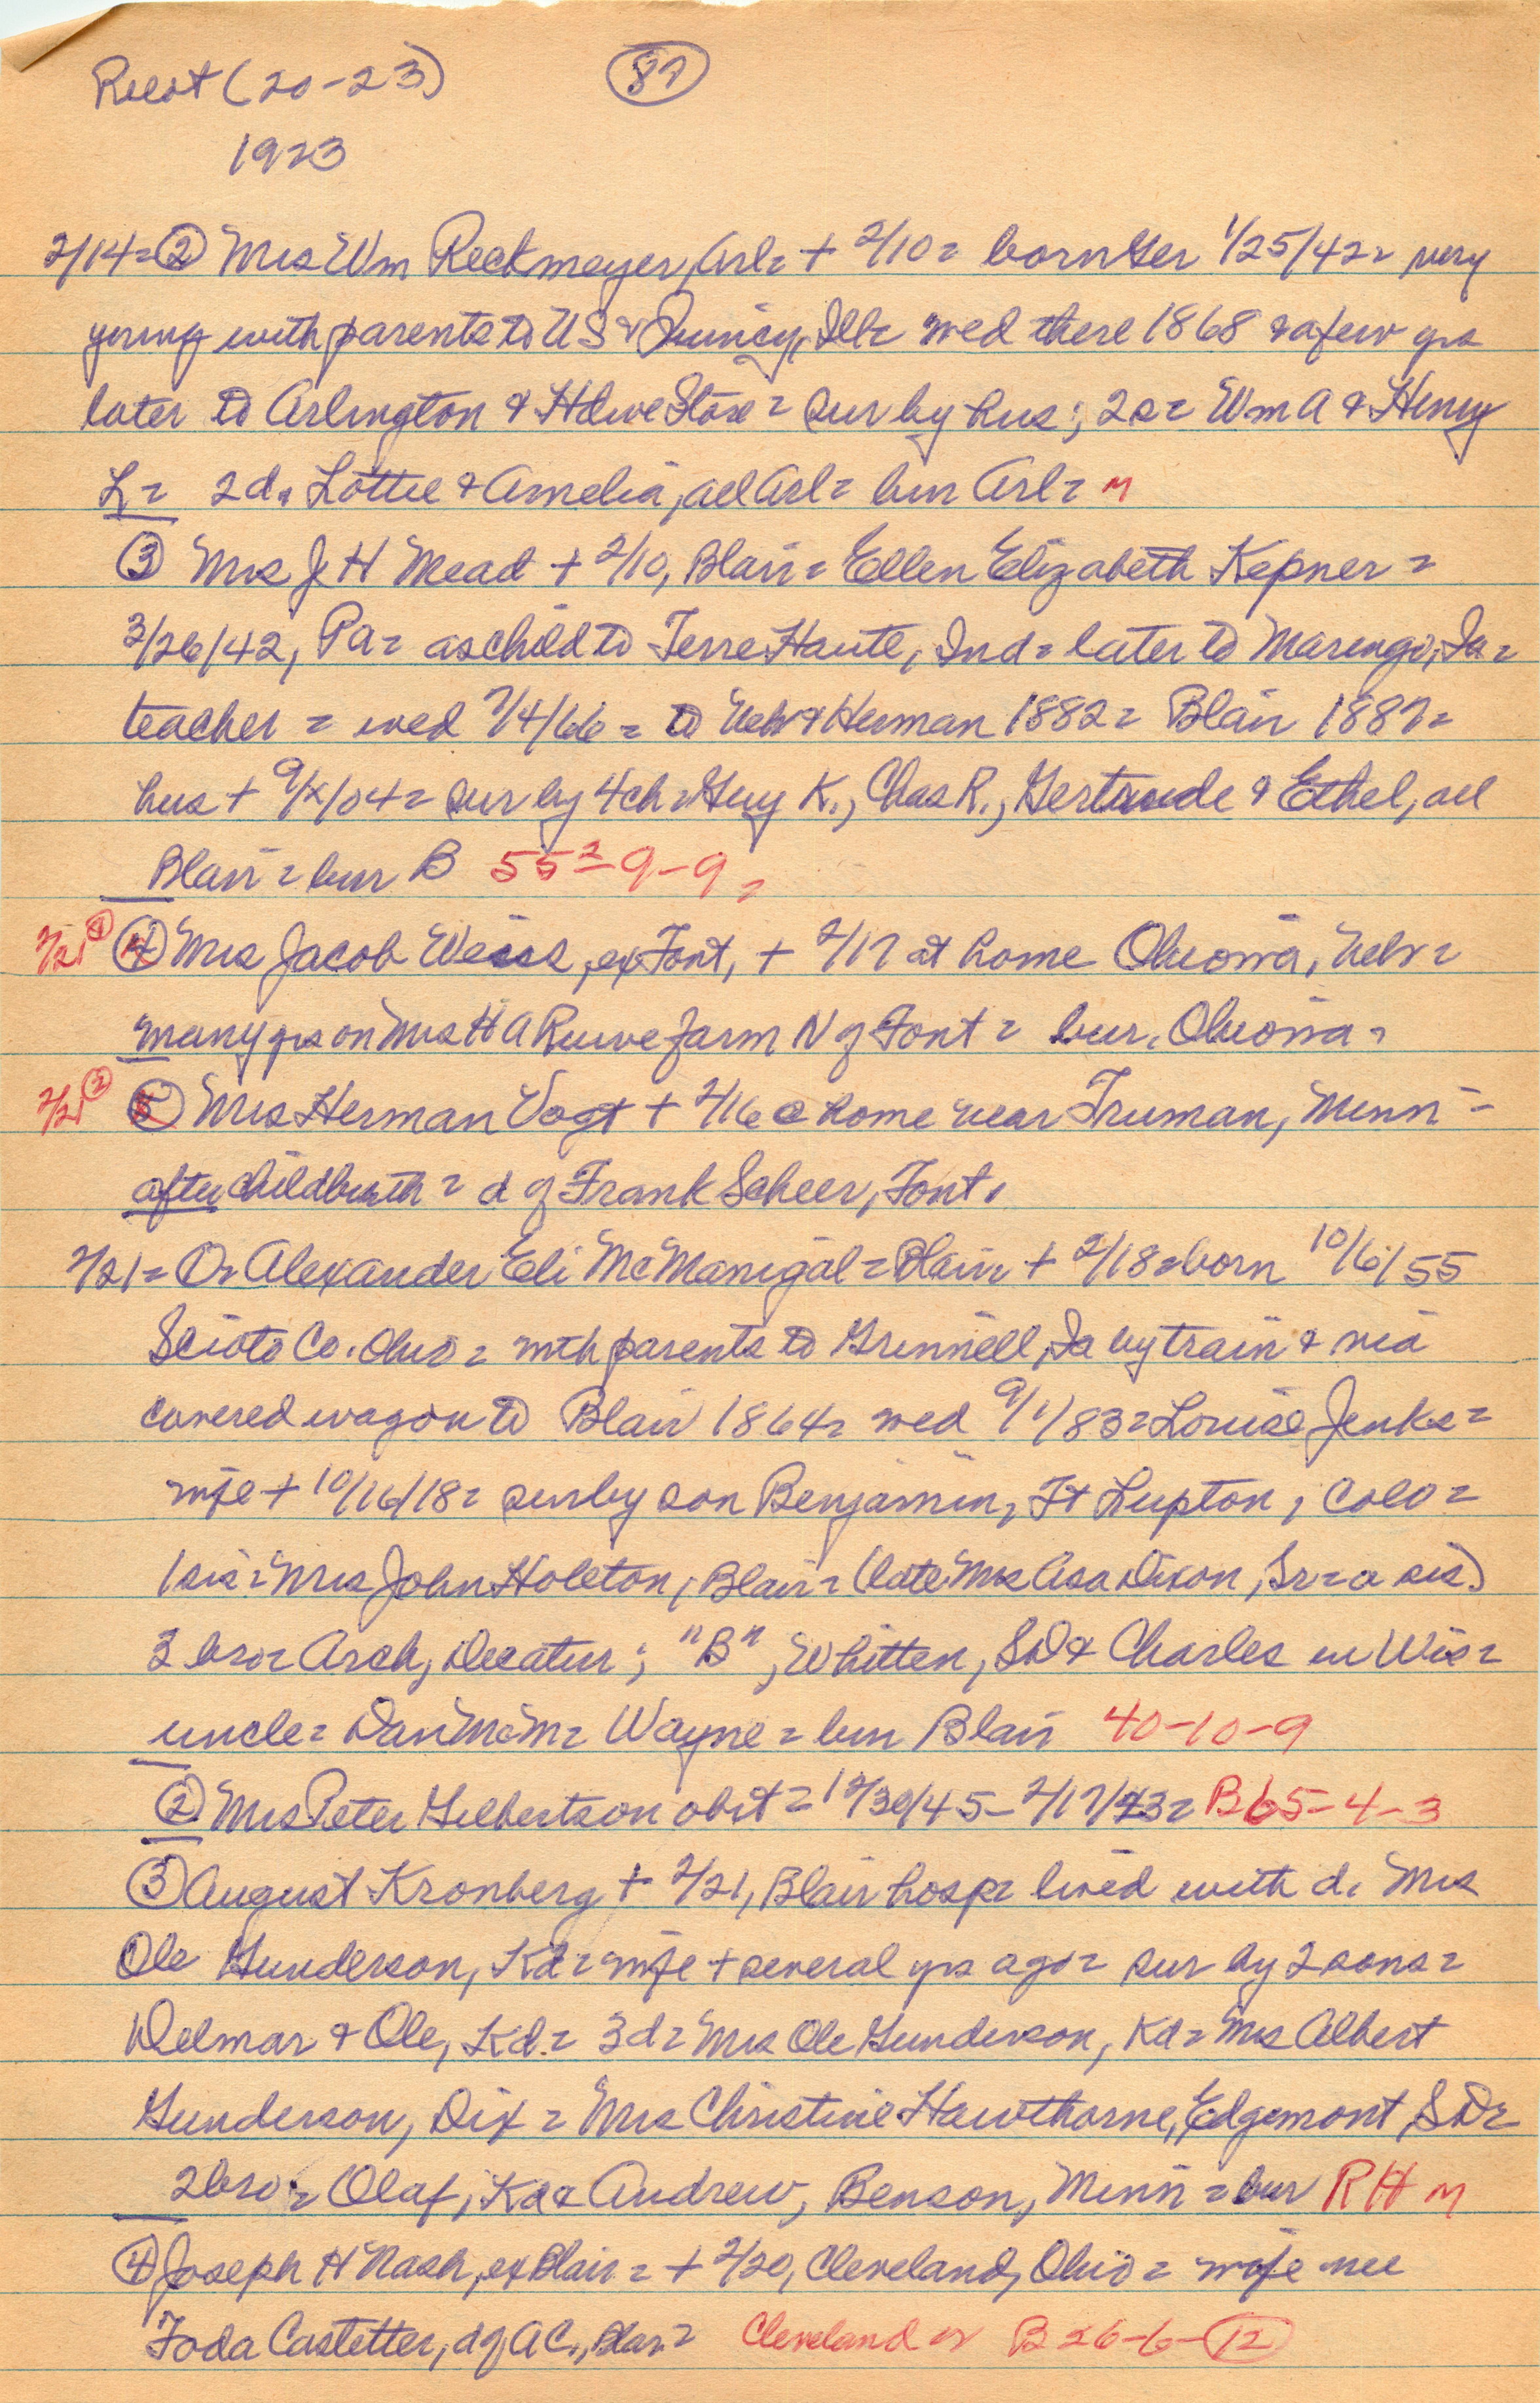 Rcest (20-23) 87
1923
2/14= ② Mrs Wm Reckmeyer, Arl= + 2/10= born Ger 1/25/42= very
young with parents to US & Quincy, Ill= wed there 1868 & a few yrs
later to Arlington & Hdwe Store= sur by hus; 2s= Wm A & Henry
L= 2d. Lottie & Amelia, all Arl= bur Arl= M
③ Mrs J H Mead + 2/10, Blair= Ellen Elizabeth Kepner=
3/26/42, Pa= as child to Terre Haute, Ind= later to Marengo, Ia=
teacher= wed 7/4/66= to Neb & Herman 1882= Blair 1887=
hus + 9/x/04= sur by 4ch= Guy K., Chas R., Gertrude & Ethel, all
Blair= bur B 55 2-9-9=
2/21 ① ④ Mrs Jacob Weiss, ex Font, + 2/17 at home Ohiowa, Neb=
many yrs on Mrs H A Ruwe farm N of Font= bur. Ohiowa=
2/21 ② ⑤ Mrs Herman Vogt + 2/16 @ home near Truman, Minn-
after childbirth= d of Frank Scheer, Font.
2/21= Dr Alexander Eli McManigal= Blair= + 2/18= born 10/6/55
Scioto Co. Ohio= with parents to Grinnell, Ia by train & via
covered wagon to Blair 1864= wed 9/1/83= Louise Jenks=
wife + 10/16/18= sur by son Benjamin, Ft Lupton, Colo=
1 sis= Mrs John Holeton, Blair= (late Mrs Asa Dixon, Sr= a sis)
3 bro= Arch, Decatur; "B", Whitten, SD & Charles in Wis=
uncle= Dan McM= Wayne= bur Blair 40-10-9
② Mrs Peter Gilbertson obit= 12/30/45-2/17/23= B 65-4-3
③ August Kronberg + 2/21, Blair hosp= lived with d. Mrs
Ole Gunderson, Kd= wife + several yrs ago= sur by 2 sons=
Delmar & Ole, Kd.= 3d= Mrs Ole Gunderson, Kd= Mrs Albert
Gunderson, Dix= Mrs Christine Hawthorne, Edgemont, SD=
2 bro= Olaf, Kd & Andrew, Benson, Minn= bur RH M
④ Joseph H Nash, ex Blair= + 2/20, Cleveland, Ohio= wife nee
Foda Castetter, d of A C., Blair= Cleveland or B 26-6-12